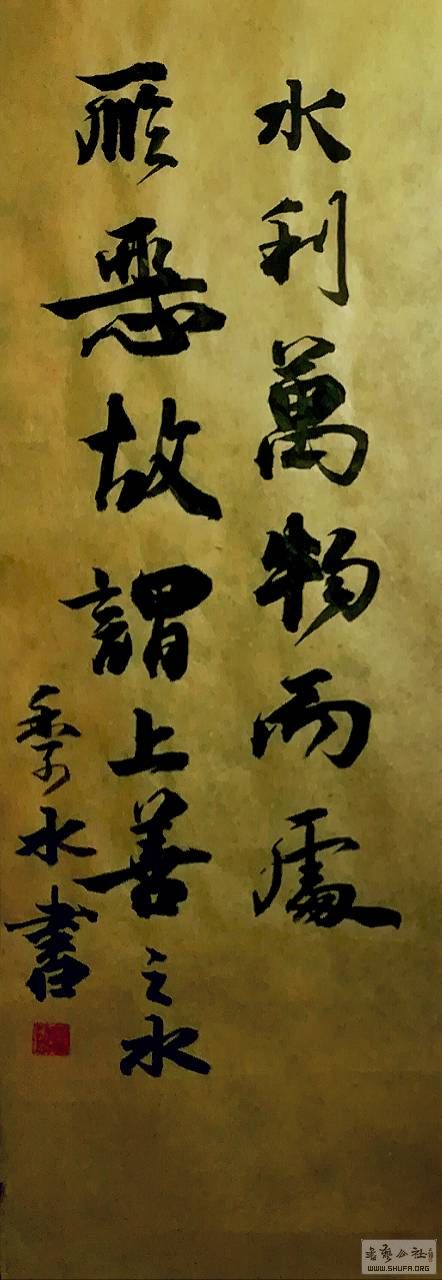 水利萬物而處
所惡故謂上善之水
季水書
書藝公社
WWW.SHUFA.ORG